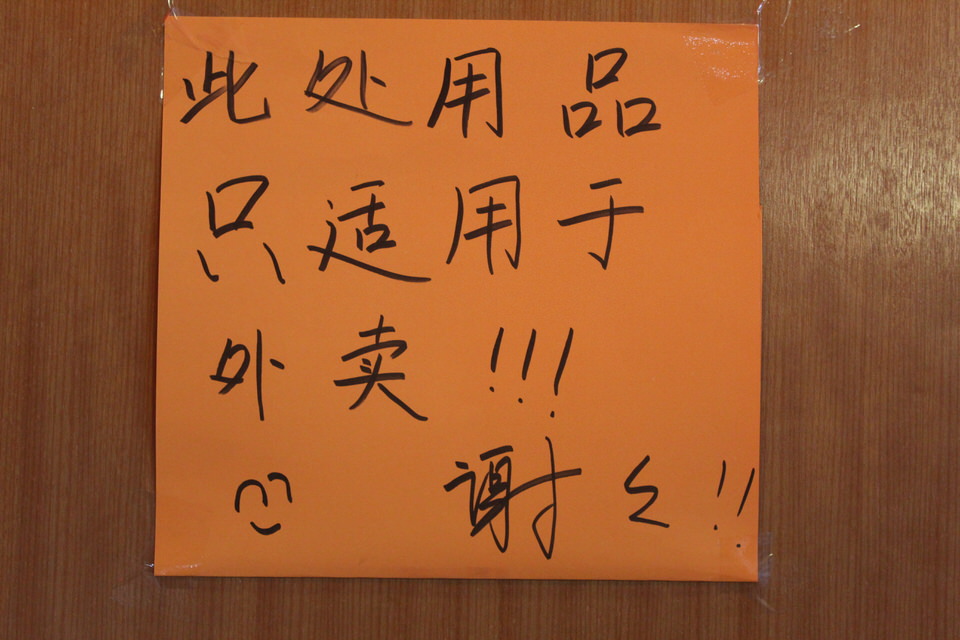 此处用品
只适用于
外卖!!!
谢々!!